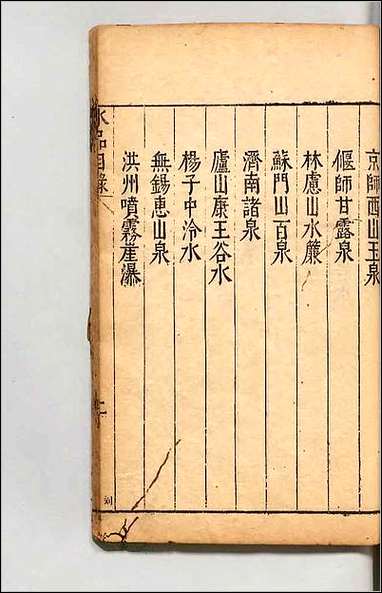 京師西山玉泉
偃師甘露泉
林慮山水簾
蘇門山百泉
濟南諸泉
廬山康王谷水
楊子中泠水
無錫惠山泉
洪州噴霧崖瀑
水品目錄